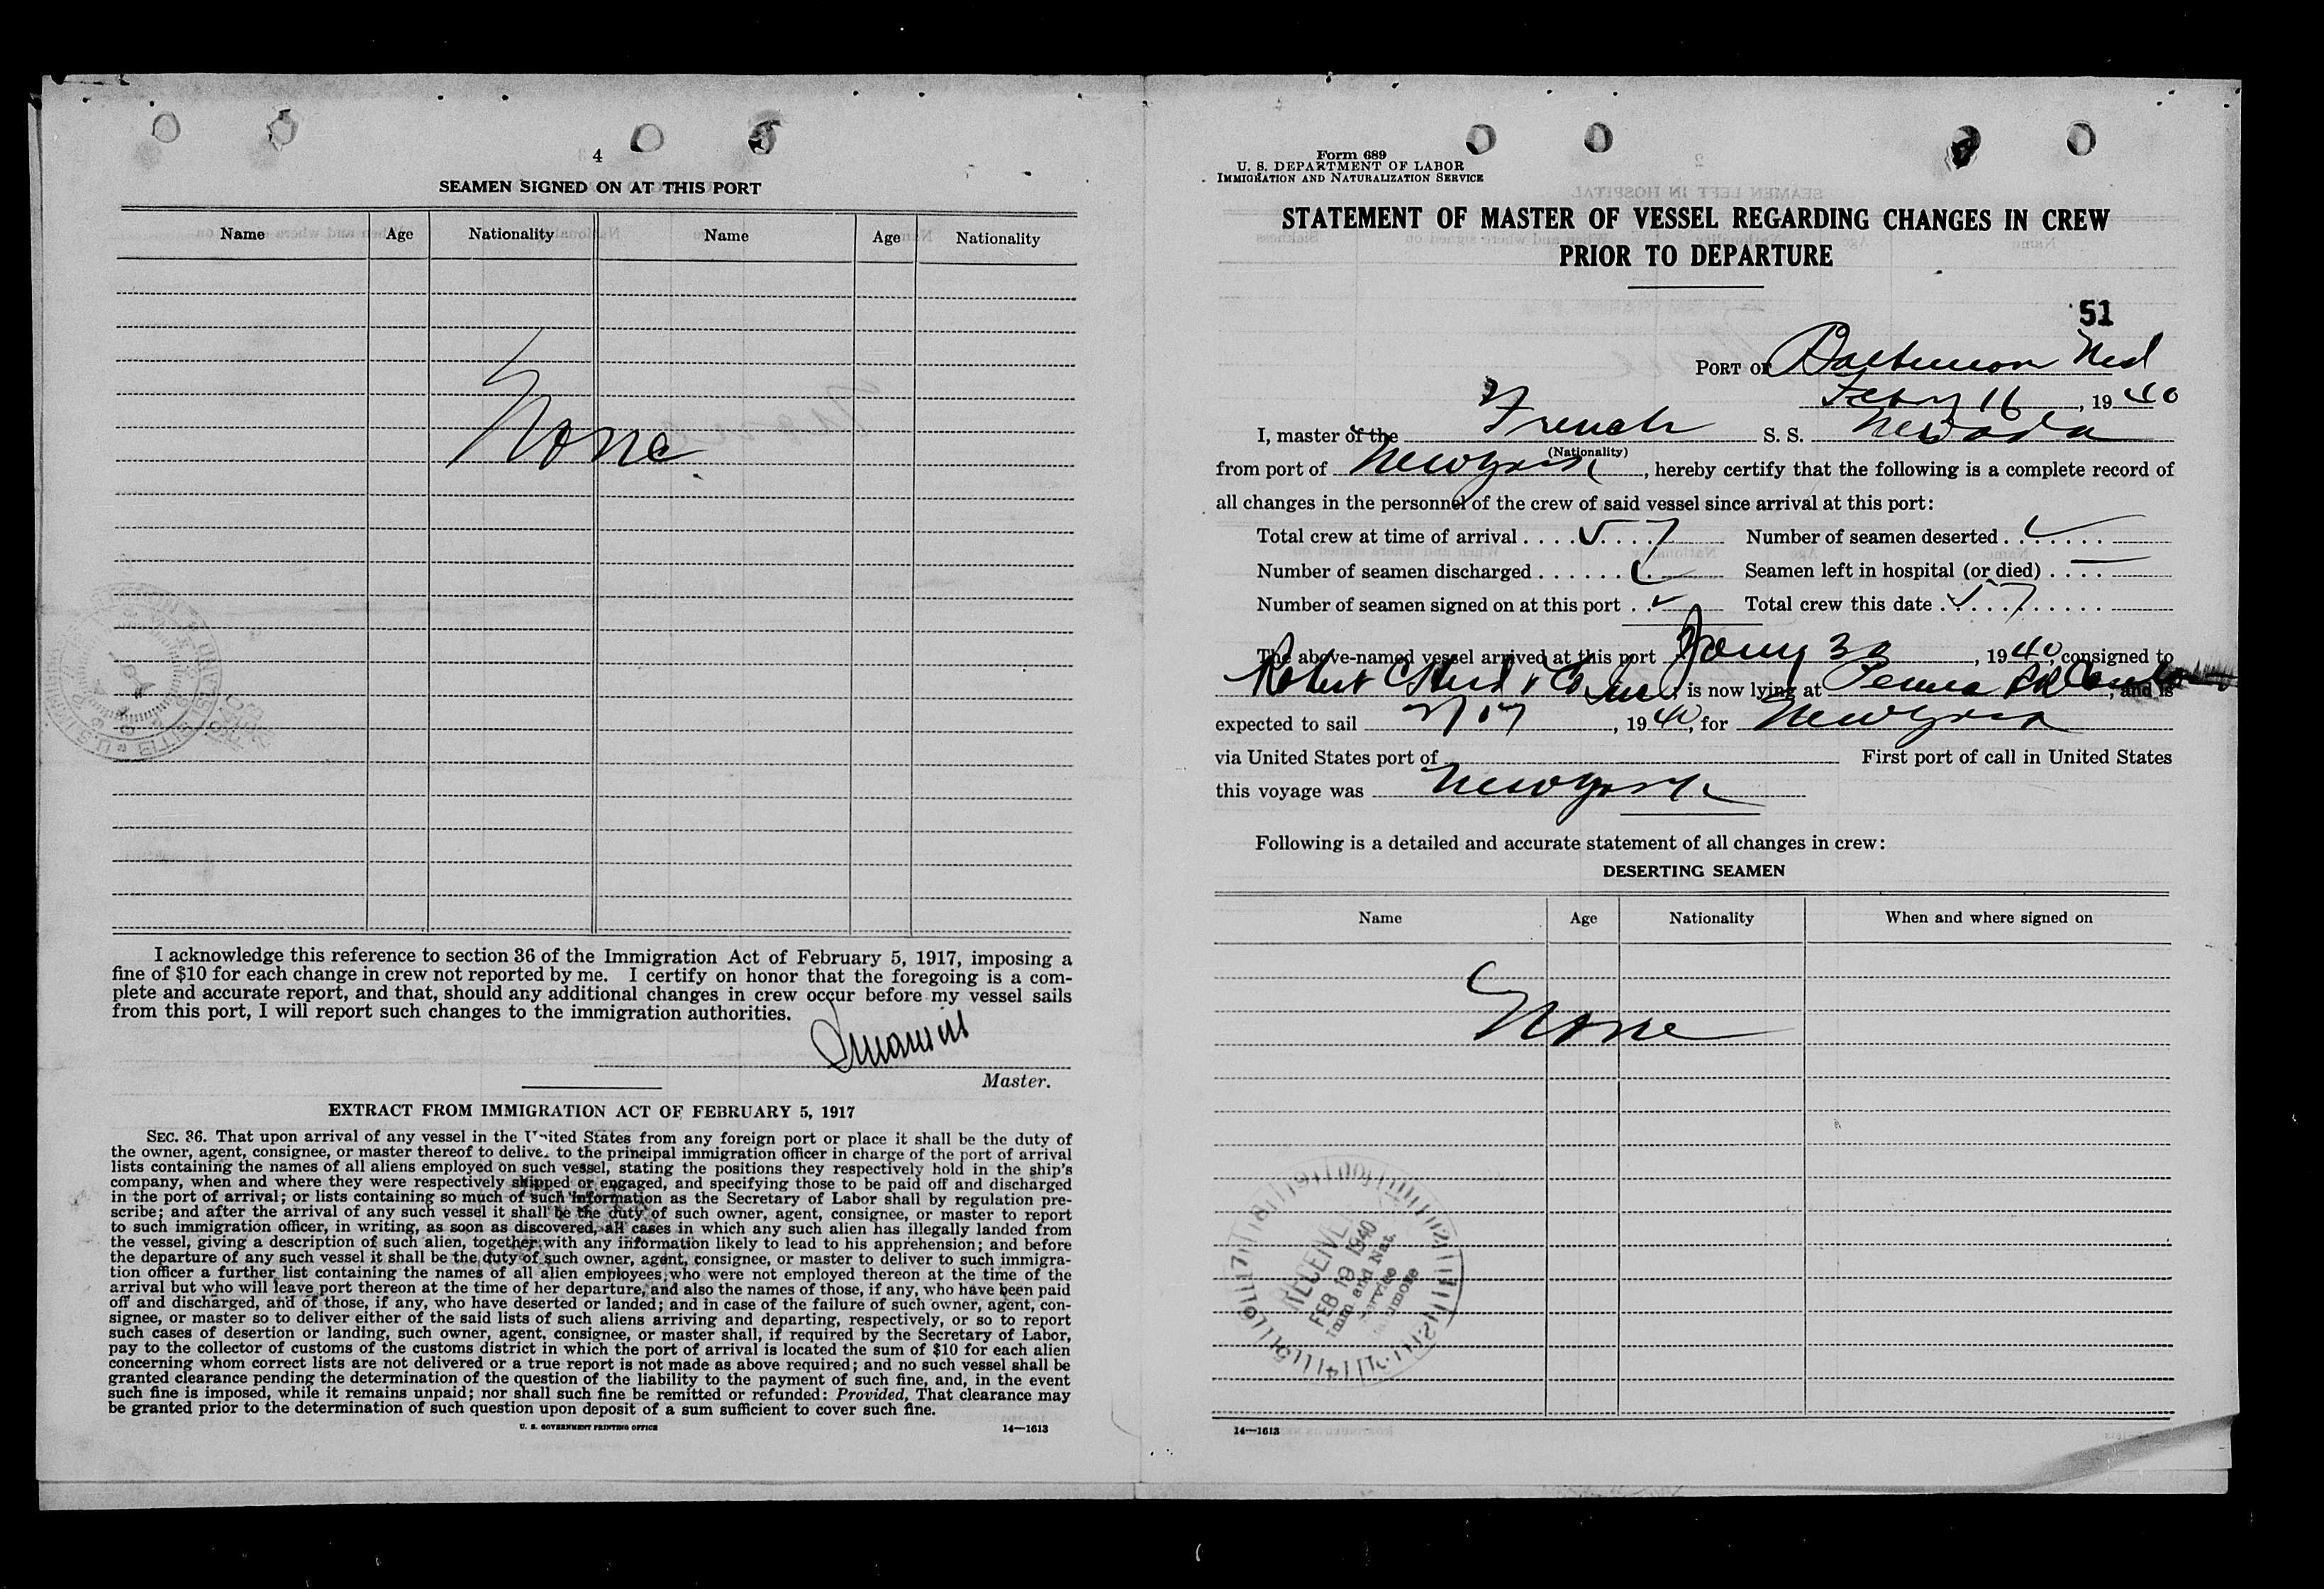 4
SEAMEN SIGNED ON AT THIS PORT
Name Age Nationality Name Age Nationality
None
I acknowledge this reference to section 36 of the Immigration Act of February 5, 1917, imposing a
fine of $10 for each change in crew not reported by me. I certify on honor that the foregoing is a com-
plete and accurate report, and that, should any additional changes in crew occur before my vessel sails
from this port, I will report such changes to the immigration authorities.
Master.
EXTRACT FROM IMMIGRATION ACT OF FEBRUARY 5, 1917
SEC. 36. That upon arrival of any vessel in the United States from any foreign port or place it shall be the duty of
the owner, agent, consignee, or master thereof to deliver to the principal immigration officer in charge of the port of arrival
lists containing the names of all aliens employed on such vessel, stating the positions they respectively hold in the ship's
company, when and where they were respectively shipped or engaged, and specifying those to be paid off and discharged
in the port of arrival; or lists containing so much of such information as the Secretary of Labor shall by regulation pre-
scribe; and after the arrival of any such vessel it shall be the duty of such owner, agent, consignee, or master to report
to such immigration officer, in writing, as soon as discovered, all cases in which any such alien has illegally landed from
the vessel, giving a description of such alien, together with any information likely to lead to his apprehension; and before
the departure of any such vessel it shall be the duty of such owner, agent, consignee, or master to deliver to such immigra-
tion officer a further list containing the names of all alien employees who were not employed thereon at the time of the
arrival but who will leave port thereon at the time of her departure, and also the names of those, if any, who have been paid
off and discharged, and of those, if any, who have deserted or landed; and in case of the failure of such owner, agent, con-
signee, or master so to deliver either of the said lists of such aliens arriving and departing, respectively, or so to report
such cases of desertion or landing, such owner, agent, consignee, or master shall, if required by the Secretary of Labor,
pay to the collector of customs of the customs district in which the port of arrival is located the sum of $10 for each alien
concerning whom correct lists are not delivered or a true report is not made as above required; and no such vessel shall be
granted clearance pending the determination of the question of the liability to the payment of such fine, and, in the event
such fine is imposed, while it remains unpaid; nor shall such fine be remitted or refunded: Provided, That clearance may
be granted prior to the determination of such question upon deposit of a sum sufficient to cover such fine.
U. S. GOVERNMENT PRINTING OFFICE 14—1613
Form 689
U. S. DEPARTMENT OF LABOR
IMMIGRATION AND NATURALIZATION SERVICE
STATEMENT OF MASTER OF VESSEL REGARDING CHANGES IN CREW
PRIOR TO DEPARTURE
51
PORT OF Baltimore Md
Feby 16, 1940
I, master of the French S. S. Nevada
(Nationality)
from port of New York, hereby certify that the following is a complete record of
all changes in the personnel of the crew of said vessel since arrival at this port:
Total crew at time of arrival .... 57 Number of seamen deserted ......
Number of seamen discharged ...... Seamen left in hospital (or died) ....
Number of seamen signed on at this port .. Total crew this date . 57
The above-named vessel arrived at this port Jany 30, 1940, consigned to
Robert C Herd & Co Inc, is now lying at Penna RR, and is
expected to sail 2/17, 1940, for New York
via United States port of First port of call in United States
this voyage was New York
Following is a detailed and accurate statement of all changes in crew:
DESERTING SEAMEN
Name Age Nationality When and where signed on
None
RECEIVED
FEB 19 1940
Imm and Nat.
Service
14—1613